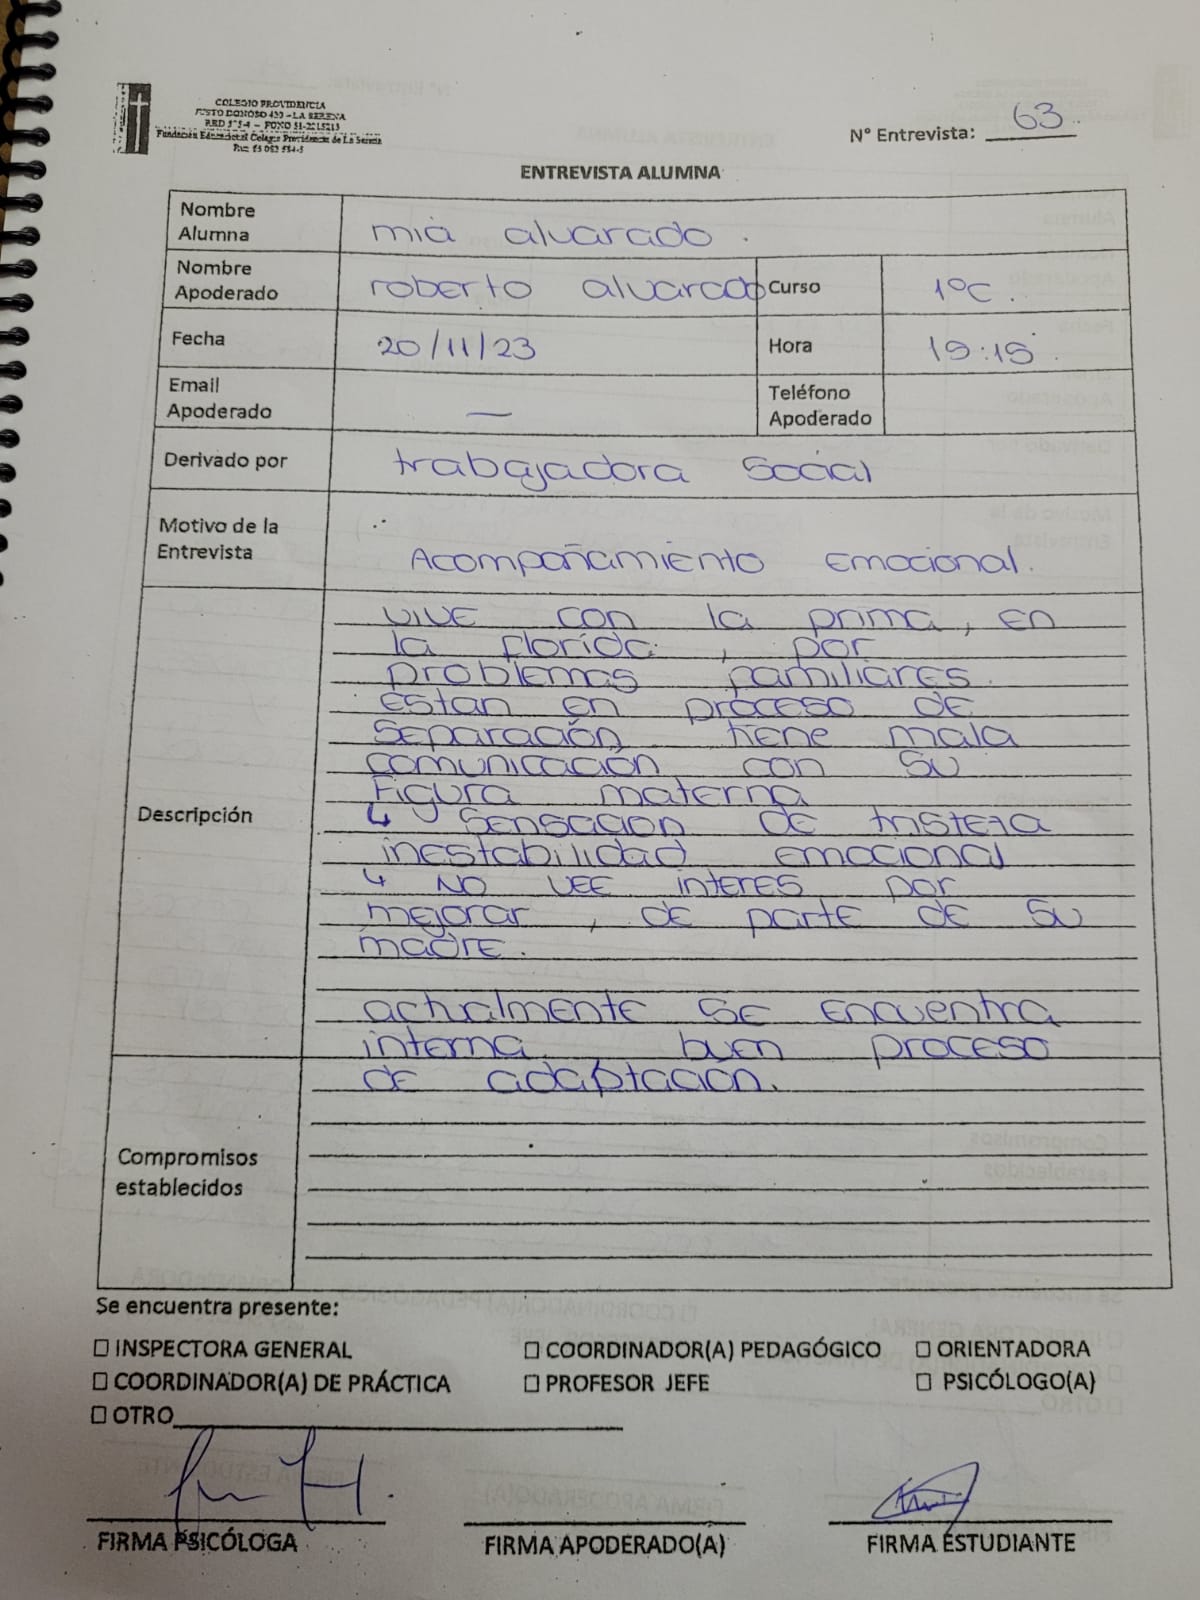 COLEGIO PROVIDENCIA
JUSTO DONOSO 420 - LA SERENA
Fundación Educacional Colegio Providencia de La Serena
N° Entrevista: 63
ENTREVISTA ALUMNA
Nombre Alumna mia alvarado.
Nombre Apoderado roberto alvarado Curso 1°C.
Fecha 20/11/23 Hora
Email Apoderado — Teléfono Apoderado
Derivado por trabajadora Social
Motivo de la Entrevista Acompañamiento Emocional.
Descripción
VIVE con la prima, En
la florida, por
problemas familiares.
Estan En proceso DE
Separación tiene mala
comunicación con SU
Figura materna
↳ Sensacion DE tristeza
inestabilidad emocional
↳ NO VEE interes por
mejorar, DE parte DE SU
madre.
actualmente SE Encuentra
interna. buen proceso
DE adaptacion.
Compromisos establecidos
Se encuentra presente:
☐ INSPECTORA GENERAL ☐ COORDINADOR(A) PEDAGÓGICO ☐ ORIENTADORA
☐ COORDINADOR(A) DE PRÁCTICA ☐ PROFESOR JEFE ☐ PSICÓLOGO(A)
☐ OTRO
FIRMA PSICÓLOGA FIRMA APODERADO(A) FIRMA ESTUDIANTE